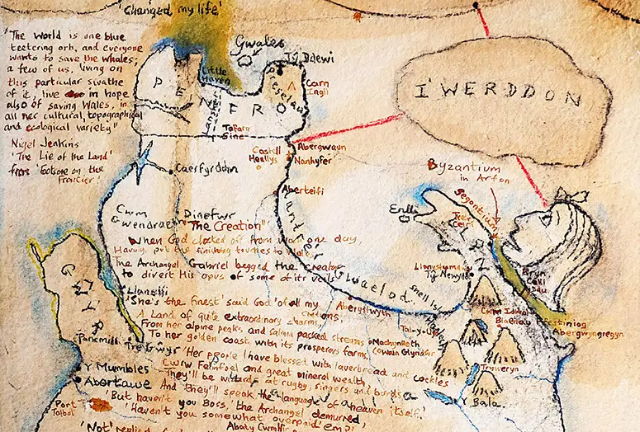 'Changed my life'
"The World is one blue
teetering orb, and everyone
wants to save the whales;
a few of us, living on
this particular swathe
of it, live in hope
also of saving Wales, in
all her cultural, topographical
and ecological variety"
Nigel Jenkins
'The Lie of the Land'
from 'Footsore on the
Frontier'.
Gwales
Tŷ Ddewi
Little
Haven
Preselau
Carn
Ingli
PENFRO
Tafarn
Sinc
Castell
Henllys
Abergwaun
Nanhyfer
I'WERDDON
Byzantium
in Arfon
Segontium
Enlli
Tre'r
Ceiri
Caerfyrddin
Aberteifi
Cantre'r Gwaelod
Cwm
Gwendraeth
Dinefwr
"The Creation"
When God clocked off from work one day,
Having put the finishing touches to Wales
The Archangel Gabriel begged the creator
to divert His opus of some of its veils
'She's the finest' said God 'of all my
creations,
A land of quite extraordinary charms,
From her alpine peaks and salmon packed streams
To her golden coast with its prosperous farms
Her people I have blessed with laverbread and cockles
Cwm Felinfoel and great mineral wealth
They'll be wizards at rugby, singers and bards
And they'll speak the language of heaven itself.'
But haven't you Boss,' the Archangel demurred,
'Haven't you somewhat overpaid 'em?'
Abaty Cwmhir
'Not' replied
Llanelli
Parcmill
Tre Gŵyr
Y Mumbles
Abertawe
Port
Talbot
Aberystwyth
Machynlleth
Owain Glyndŵr
Llanystumdwy
Tŷ Newydd
Bryn
Celli
Ddu
Blaenau
Ffestiniog
Abergwyngregyn
Tryweryn
Y Bala